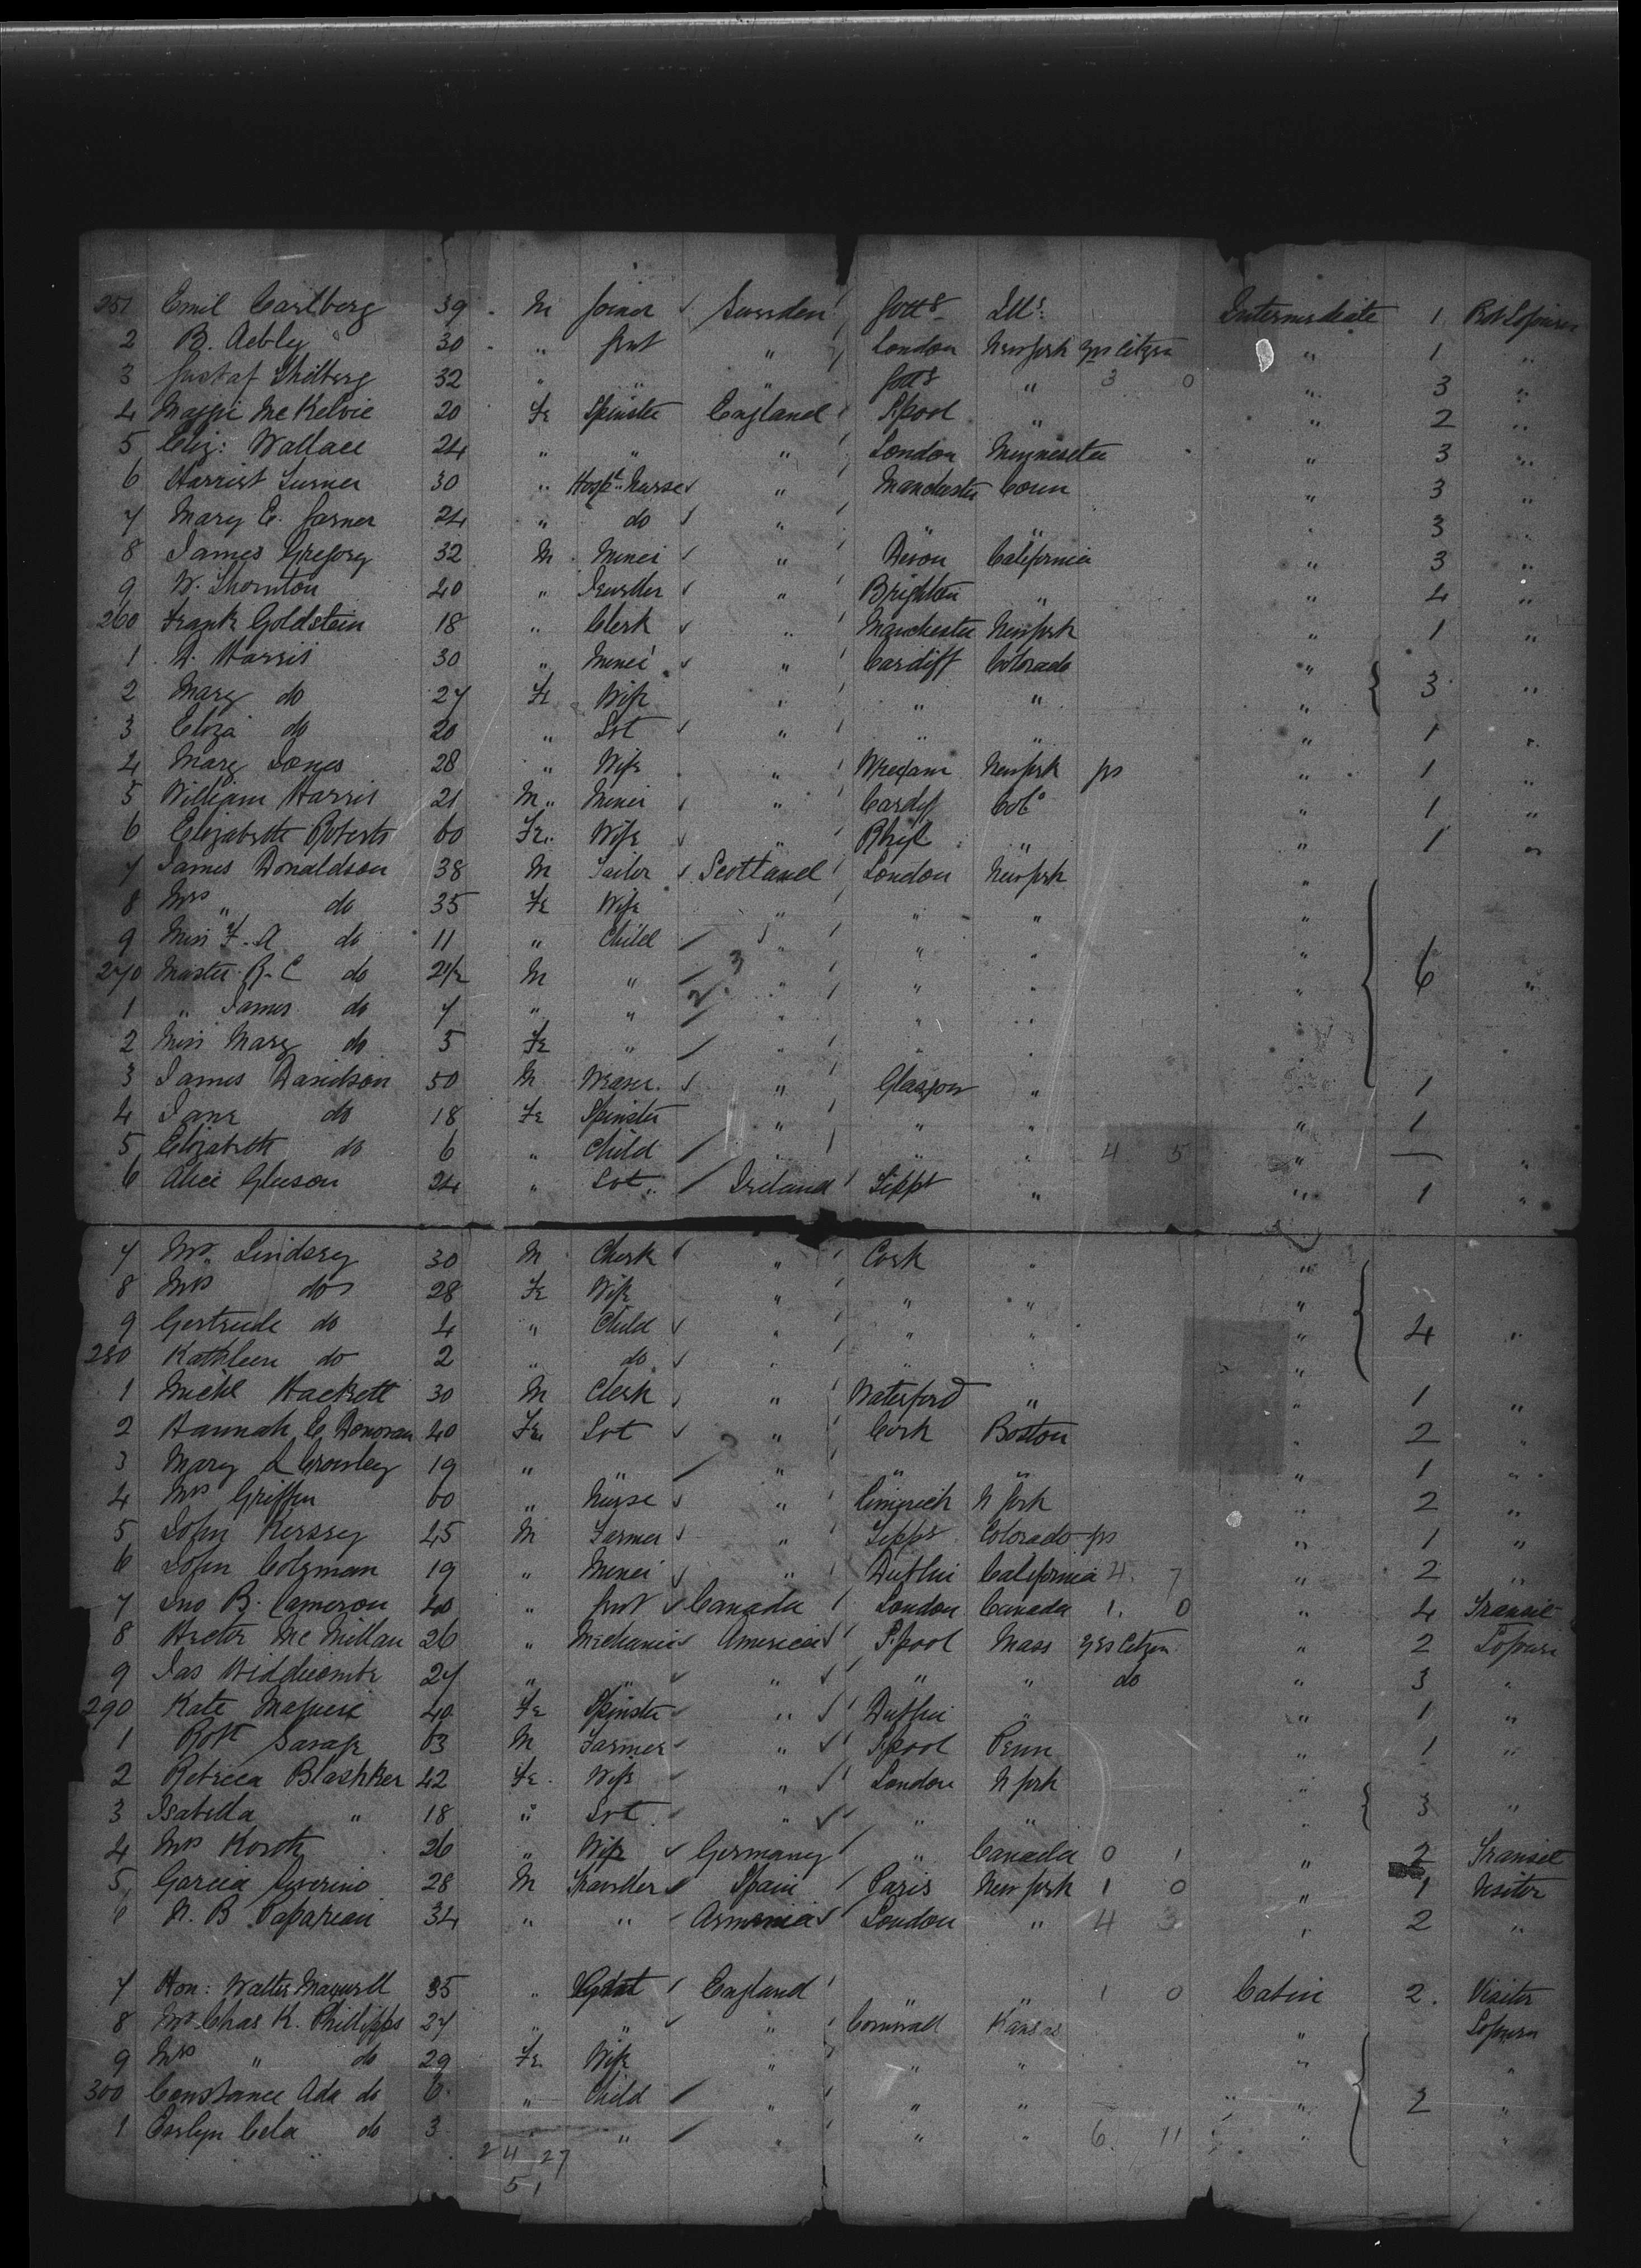 251 Emil Carlberg 39 M Joiner Sweden Gottg Ills Intermediate 1
2 B. Aebley 30 " Gent " London New York yes Citizen " 1 "
3 Gustaf 32 " " " Gottg " 3 0 " 3 "
4 Maggie McKelvie 20 Fe Spinster England Lpool " " 2 "
5 Eliz: Wallace 24 " " " London " 3 "
6 Harriet Turner 30 " Hospl Nurse " Manchester Conn " 3 "
7 Mary E. 24 " do " " " " 3 "
8 James Gregory 32 M Miner " Devon California " 3 "
9 W. Thornton 40 " " Brighton " " 4 "
260 Frank Goldstein 18 " Clerk " Manchester New York " 1 "
1 Harris 30 " Miner " Cardiff Colorado " 3 "
2 Mary do 27 Fe Wife " " " "
3 Eliza do 20 " Svt " " " " 1 "
4 Mary Jones 28 " Wife " New York ys " 1 "
5 William Harris 21 M " Miner " Cardiff Colo " 1 "
6 Elizabeth Roberts 60 Fe Wife " Rhyl " " 1 "
7 James Donaldson 38 M Scotland London New York "
8 Mrs " do 35 Fe Wife " " " "
9 Miss F. A do 11 " Child " " " " 6
270 Master R. C do 2 1/2 M " " " " " "
1 " James do 7 " " " " "
2 Miss Mary do 5 Fe " " " "
3 James Davidson 50 M " Glasgow " 1
4 Jane do 18 Fe Spinster " " " " 1
5 Elizabeth do 6 " Child " " " 4 5 " — "
6 Alice Gleeson 24 " Svt Ireland Tippy " " 1 "
7 Mr. Lindsey 30 M Clerk " Cork " "
8 Mrs do 28 Fe Wife " " " "
9 Gertrude do 4 " Child " " " " 4 "
280 Kathleen do 2 " do " " " "
1 Michl Hackett 30 M Clerk " Waterford " " 1 "
2 Hannah C Donovan 40 Fe Svt " Cork Boston " 2 "
3 Mary A Crowley 19 " " " " " " 1 "
4 Mrs Griffin 60 " Nurse " Limerick N York " 2 "
5 John 45 M Farmer " Tippy Colorado ys " 1 "
6 John Coleman 19 " Miner " Dublin California 4. 7 " 2 "
7 Jno B. Cameron 40 " Gent Canada London Canada 1. 0 " 4 Transit
8 Hector McMillan 26 " Mechanic America Lpool Mass yes Citzen " 2
9 Jas Widdicombe 27 " " " " " do " 3 "
290 Kate Maguire 40 Fe Spinster " Dublin " " 1 "
1 Robt Savage 63 M Farmer " Lpool Penn " 1 "
2 Rebecca Blashker 42 Fe Wife " London N York " 3 "
3 Isabella " 18 " Svt " " " "
4 Mrs 26 " Wife Germany " Canada 0 1 " 2 Transit
5 Garcia Severino 28 M Traveller Spain Paris New York 1 0 " 1 Visitor
6 N. B. 34 " " Armenia London " 4 3 " 2 "
7 Hon: Walter Maxwell 35 " Gent England " " 1 0 Cabin 2. Visitor
8 Mr Chas K. Phillipps 27 " " " Cornwall Kansas "
9 Mrs " do 29 Fe Wife " " " " "
300 Constance Ada do 6 " Child " " " " 2 "
1 Evelyn Cela do 3 " " " " " 6. 11 " "
24 27
51